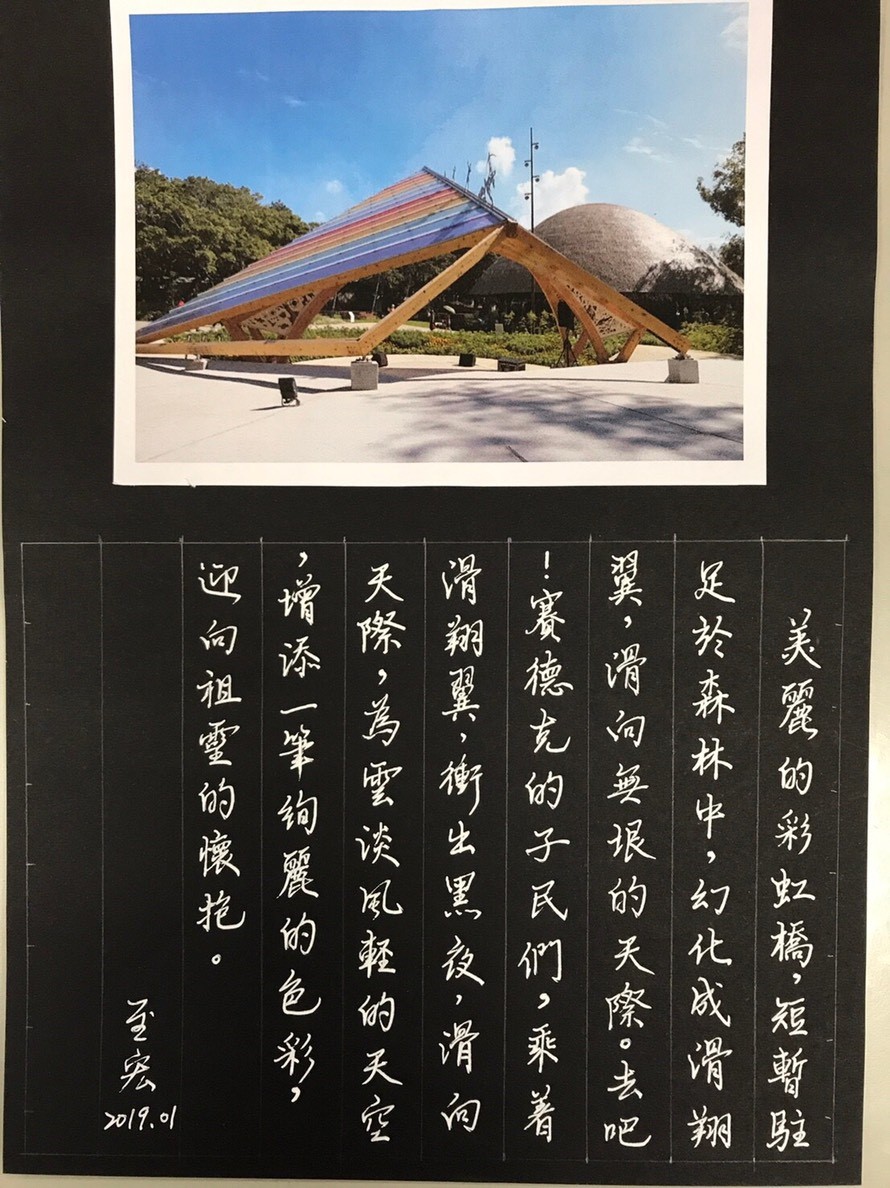 美麗的彩虹橋，短暫駐
足於森林中，幻化成滑翔
翼，滑向無垠的天際。去吧
！賽德克的子民們，乘着
滑翔翼，衝出黑夜，滑向
天際，為雲淡風輕的天空
，增添一筆絢麗的色彩，
迎向祖靈的懷抱。
至宏
2019.01